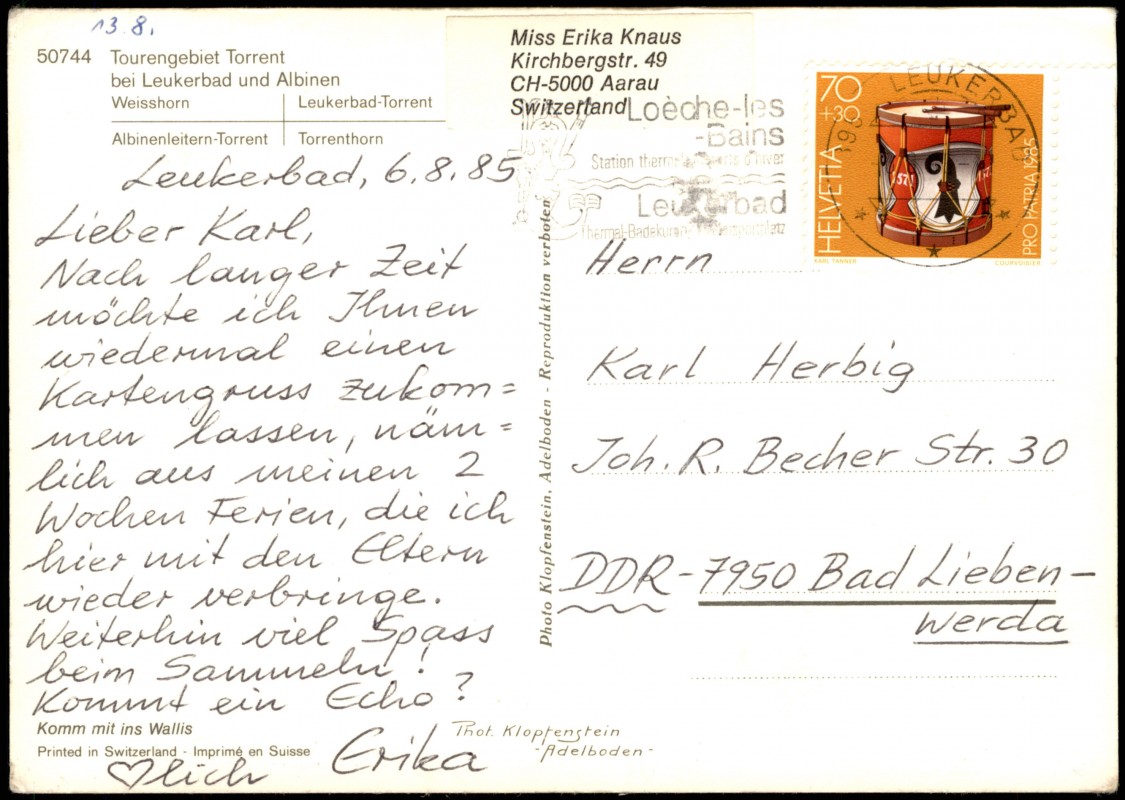 13.8.
50744 Tourengebiet Torrent
bei Leukerbad und Albinen
Weisshorn
Leukerbad-Torrent
Albinenleitern-Torrent
Torrenthorn
Miss Erika Knaus
Kirchbergstr. 49
CH-5000 Aarau
Switzerland
Loèche-les
-Bains
Station thermale d'hiver
Leukerbad
LEUKERBAD
70
+30
HELVETIA
PRO PATRIA 1985
KARL TANNER
COURVOISIER
Leukerbad, 6.8.85
Lieber Karl,
Nach langer Zeit
möchte ich Ihnen
wiedermal einen
Kartengruss zukom=
men lassen, näm=
lich aus meinen 2
Wochen Ferien, die ich
hier mit den Eltern
wieder verbringe.
Weiterhin viel Spass
beim Sammeln!
Kommt ein Echo?
♡lich Erika
Komm mit ins Wallis
Printed in Switzerland - Imprimé en Suisse
Phot. Klopfenstein
- Adelboden -
Photo Klopfenstein, Adelboden - Reproduktion verboten
Herrn
Karl Herbig
Joh. R. Becher Str. 30
DDR-7950 Bad Lieben-
werda